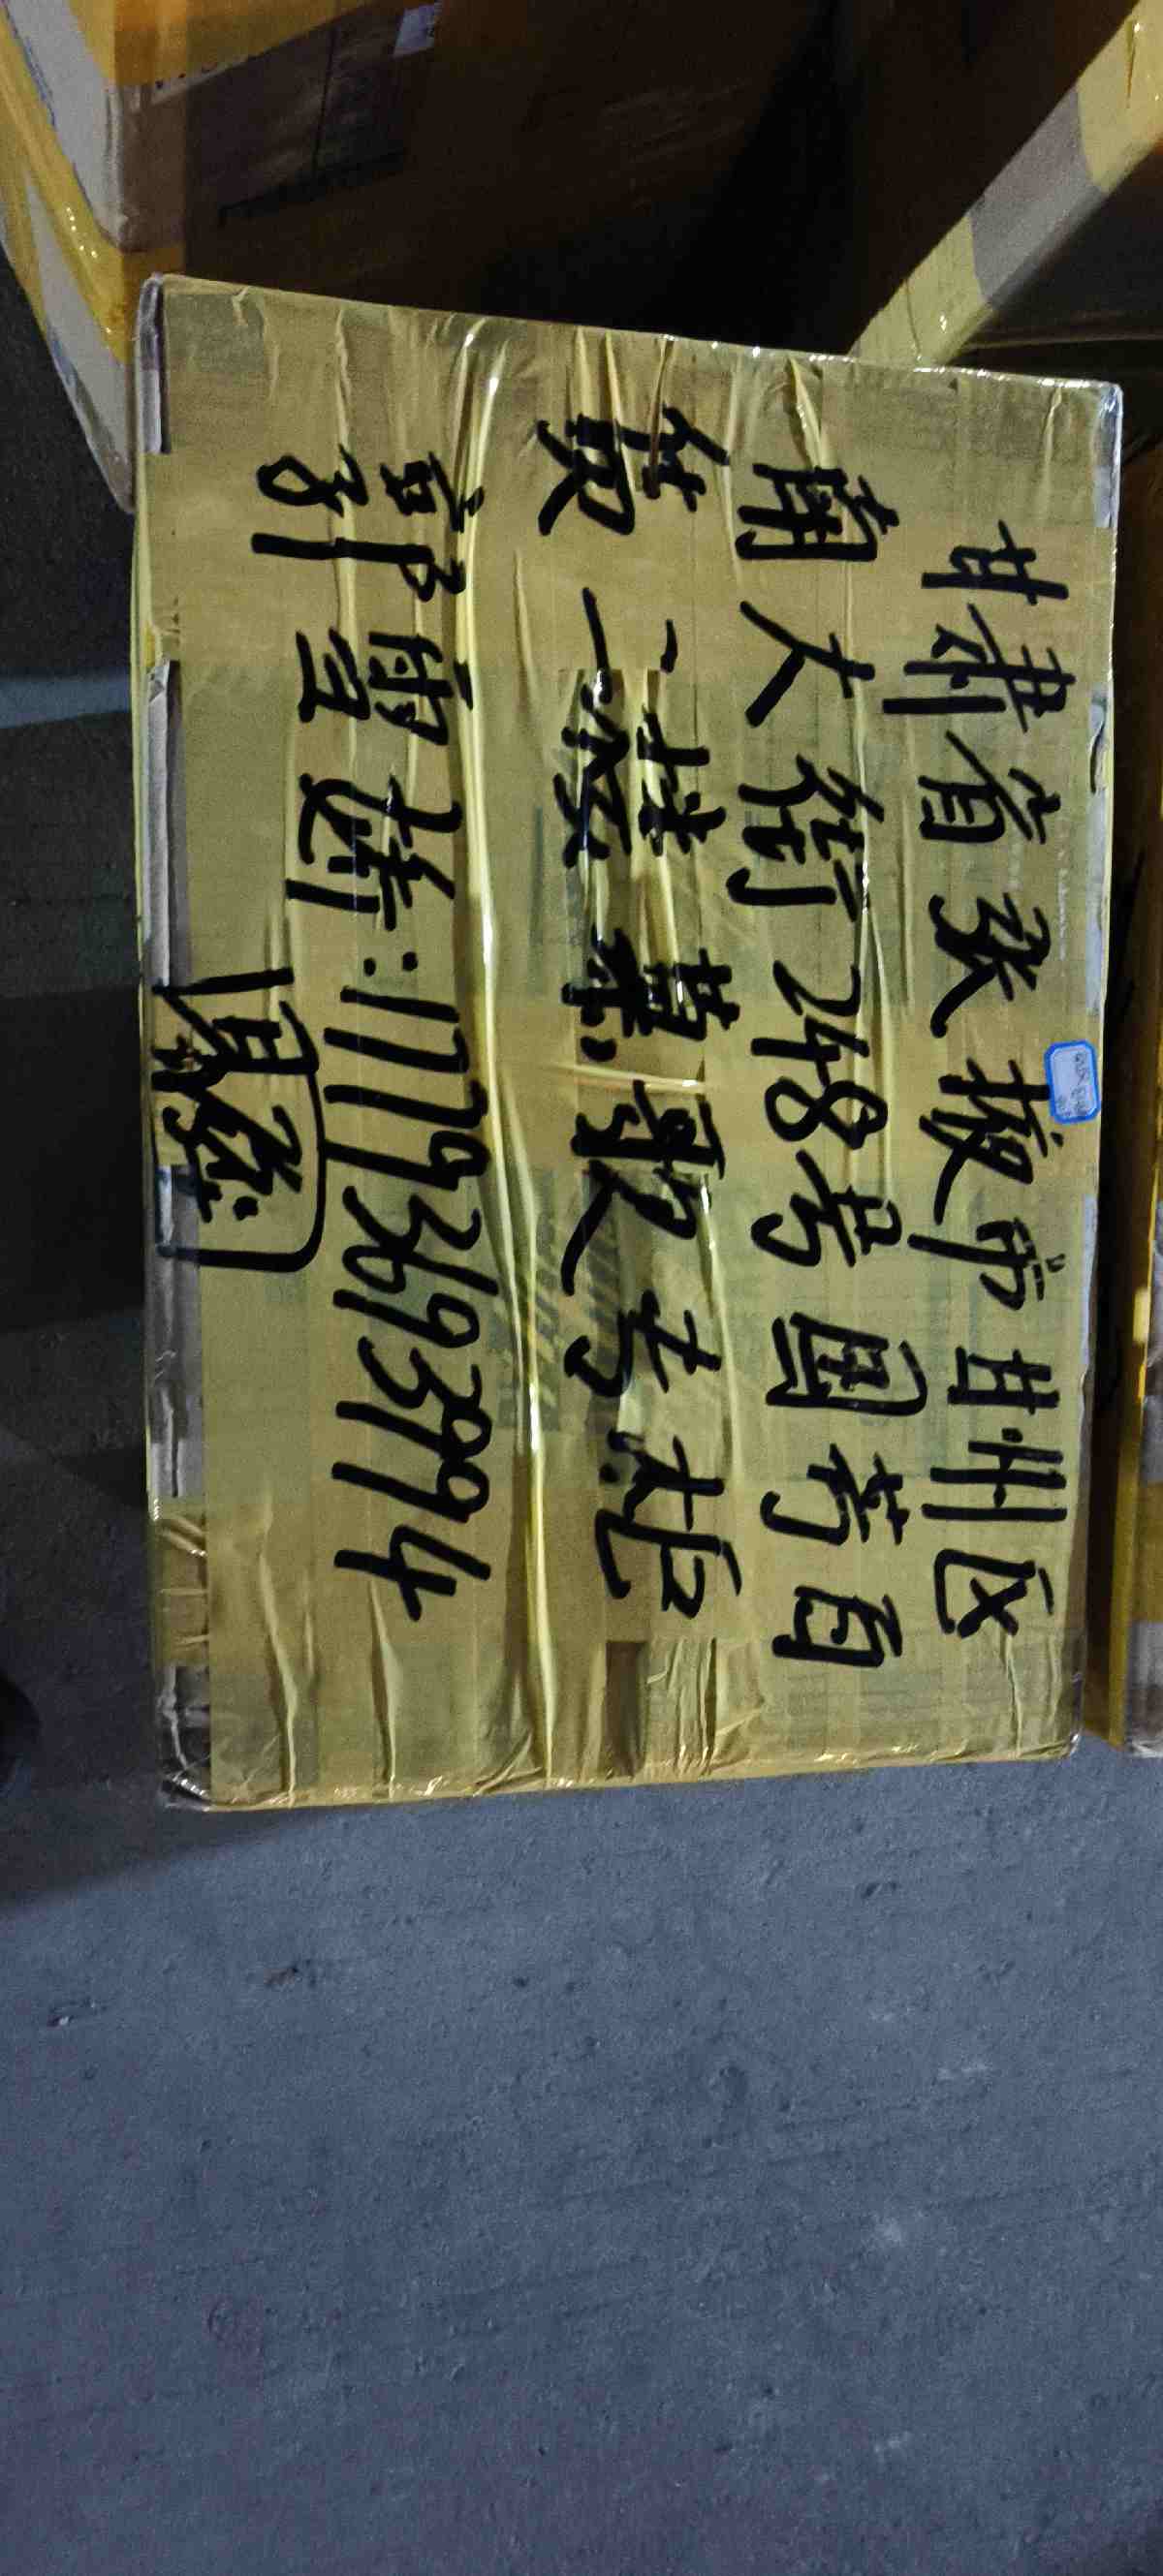 甘肃省张掖市甘州区
南大街248号国芳百
货二楼 专柜
郭雪 :17793693994